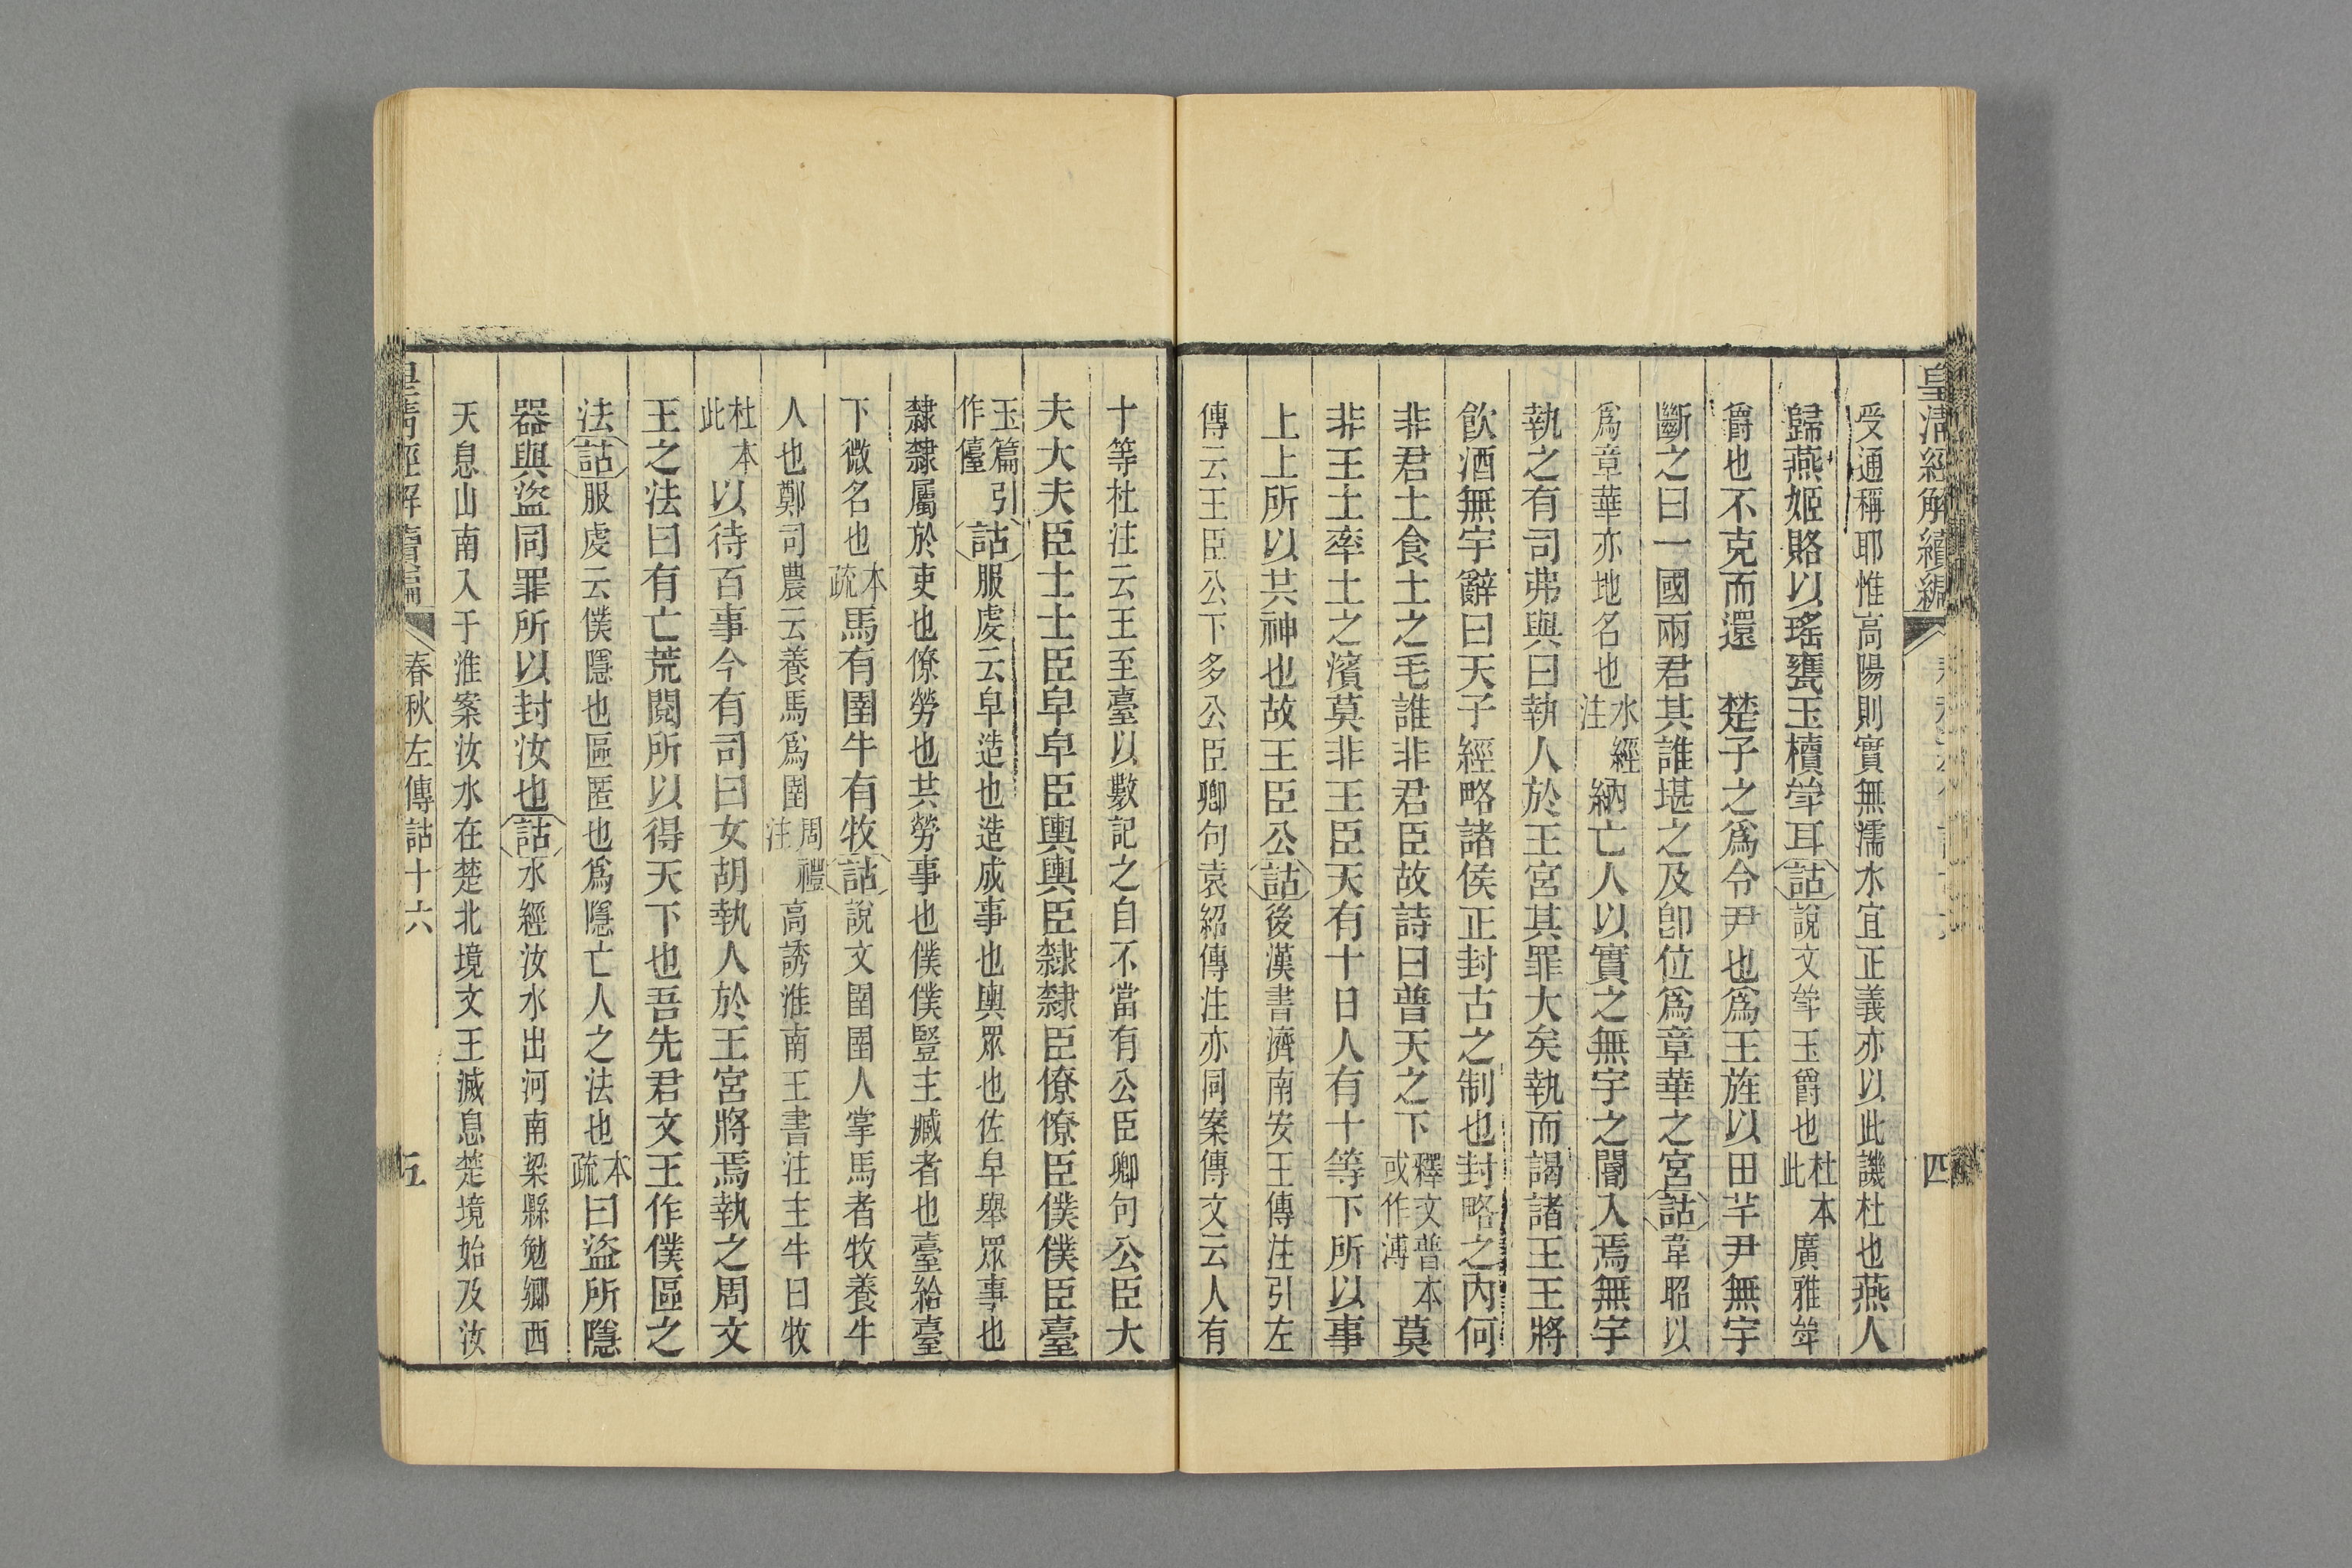 皇清經解續編
四
受通稱耶惟高陽則實無濡水宜正義亦以此譏杜也燕人
歸燕姬賂以瑤甕玉櫝斝耳詁說文斝玉爵也杜本此廣雅斝
爵也不克而還　楚子之爲令尹也爲王旌以田芊尹無宇
斷之曰一國兩君其誰堪之及卽位爲章華之宮詁韋昭以
爲章華亦地名也水經注納亡人以實之無宇之閽入焉無宇
執之有司弗與曰執人於王宮其罪大矣執而謁諸王王將
飮酒無宇辭曰天子經略諸侯正封古之制也封略之內何
非君土食土之毛誰非君臣故詩曰普天之下釋文普本或作溥莫
非王土率土之濱莫非王臣天有十日人有十等下所以事
上上所以共神也故王臣公詁後漢書濟南安王傳注引左
傳云王臣公下多公臣卿句袁紹傳注亦同案傳文云人有
十等杜注云王至臺以數記之自不當有公臣卿句公臣大
夫大夫臣士士臣皁皁臣輿輿臣隸隸臣僚僚臣僕僕臣臺
玉篇引作儓詁服虔云皁造也造成事也輿眾也佐皁舉眾事也
隸隸屬於吏也僚勞也共勞事也僕僕豎主臧者也臺給臺
下微名也本疏馬有圉牛有牧詁說文圉圉人掌馬者牧養牛
人也鄭司農云養馬爲圉周禮注高誘淮南王書注主牛曰牧
杜本此以待百事今有司曰女胡執人於王宮將焉執之周文
王之法曰有亡荒閱所以得天下也吾先君文王作僕區之
法詁服虔云僕隱也區匿也爲隱亡人之法也本疏曰盜所隱
器與盜同罪所以封汝也詁水經汝水出河南梁縣勉鄉西
天息山南入于淮案汝水在楚北境文王滅息楚境始及汝
皇清經解續編
春秋左傳詁十六
五